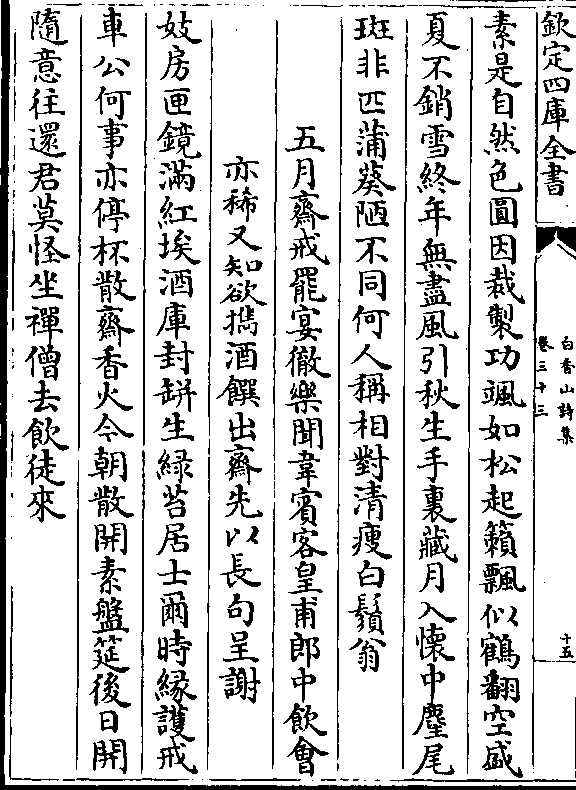 欽定四庫全書
白香山詩集
卷三十三
十五
素是自然色圓因裁製功颯如松起籟飄似鶴翻空盛
夏不銷雪終年無盡風引秋生手裏藏月入懷中麈尾
斑非匹蒲葵陋不同何人稱相對清瘦白鬚翁
五月齋戒罷宴徹樂聞韋賓客皇甫郎中飲會
亦稀又知欲擕酒饌出齋先以長句呈謝
妓房匣鏡滿紅埃酒庫封缾生緑苔居士爾時緣護戒
車公何事亦停杯散齋香火今朝散開素盤筵後日開
隨意往還君莫怪坐禪僧去飲徒來